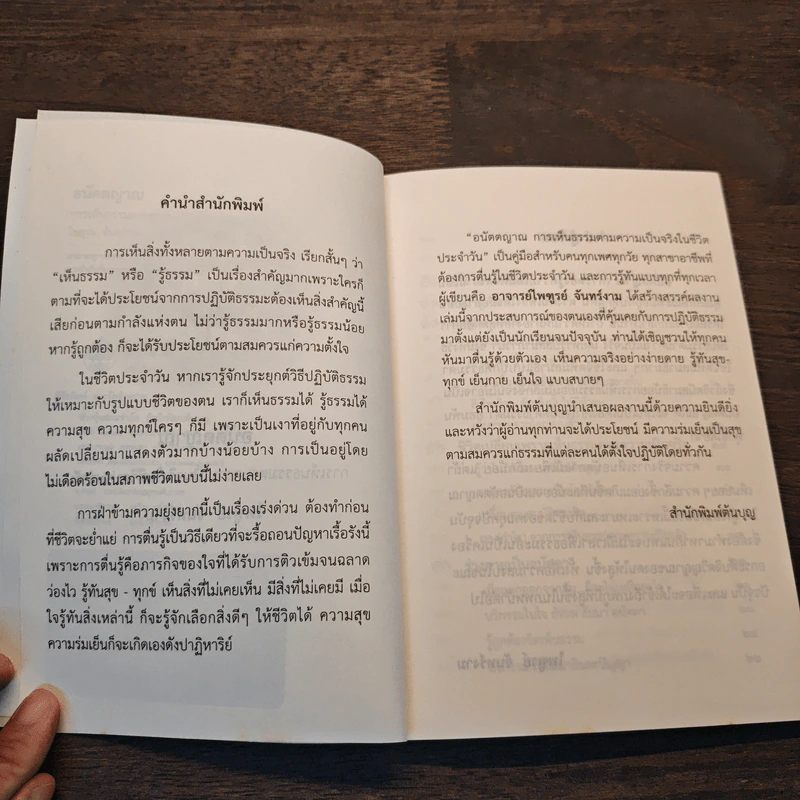 คำนำสำนักพิมพ์
การเห็นสิ่งทั้งหลายตามความเป็นจริง เรียกสั้นๆ ว่า
"เห็นธรรม" หรือ "รู้ธรรม" เป็นเรื่องสำคัญมากเพราะใครก็
ตามที่จะได้ประโยชน์จากการปฏิบัติธรรมะต้องเห็นสิ่งสำคัญนี้
เสียก่อนตามกำลังแห่งตน ไม่ว่ารู้ธรรมมากหรือรู้ธรรมน้อย
หากรู้ถูกต้อง ก็จะได้รับประโยชน์ตามสมควรแก่ความตั้งใจ
ในชีวิตประจำวัน หากเรารู้จักประยุกต์วิธีปฏิบัติธรรม
ให้เหมาะกับรูปแบบชีวิตของตน เราก็เห็นธรรมได้ รู้ธรรมได้
ความสุข ความทุกข์ใครๆ ก็มี เพราะเป็นเงาที่อยู่กับทุกคน
ผลัดเปลี่ยนมาแสดงตัวมากบ้างน้อยบ้าง การเป็นอยู่โดย
ไม่เดือดร้อนในสภาพชีวิตแบบนี้ไม่ง่ายเลย
การฝ่าข้ามความยุ่งยากนี้เป็นเรื่องเร่งด่วน ต้องทำก่อน
ที่ชีวิตจะย่ำแย่ การตื่นรู้เป็นวิธีเดียวที่จะรื้อถอนปัญหาเรื้อรังนี้
เพราะการตื่นรู้คือภารกิจของใจที่ได้รับการติวเข้มจนฉลาด
ว่องไว รู้ทันสุข - ทุกข์ เห็นสิ่งที่ไม่เคยเห็น มีสิ่งที่ไม่เคยมี เมื่อ
ใจรู้ทันสิ่งเหล่านี้ ก็จะรู้จักเลือกสิ่งดีๆ ให้ชีวิตได้ ความสุข
ความร่มเย็นก็จะเกิดเองดังปาฏิหาริย์
"อนัตตญาณ การเห็นธรรมตามความเป็นจริงในชีวิต
ประจำวัน" เป็นคู่มือสำหรับคนทุกเพศทุกวัย ทุกสาขาอาชีพที่
ต้องการตื่นรู้ในชีวิตประจำวัน และการรู้ทันแบบทุกที่ทุกเวลา
ผู้เขียนคือ อาจารย์ไพฑูรย์ จันทร์งาม ได้สร้างสรรค์ผลงาน
เล่มนี้จากประสบการณ์ของตนเองที่คุ้นเคยกับการปฏิบัติธรรม
มาตั้งแต่ยังเป็นนักเรียนจนปัจจุบัน ท่านได้เชิญชวนให้ทุกคน
หันมาตื่นรู้ด้วยตัวเอง เห็นความจริงอย่างง่ายดาย รู้ทันสุข-
ทุกข์ เย็นกาย เย็นใจ แบบสบายๆ
สำนักพิมพ์ต้นบุญนำเสนอผลงานนี้ด้วยความยินดียิ่ง
และหวังว่าผู้อ่านทุกท่านจะได้ประโยชน์ มีความร่มเย็นเป็นสุข
ตามสมควรแก่ธรรมที่แต่ละคนได้ตั้งใจปฏิบัติโดยทั่วกัน
สำนักพิมพ์ต้นบุญ